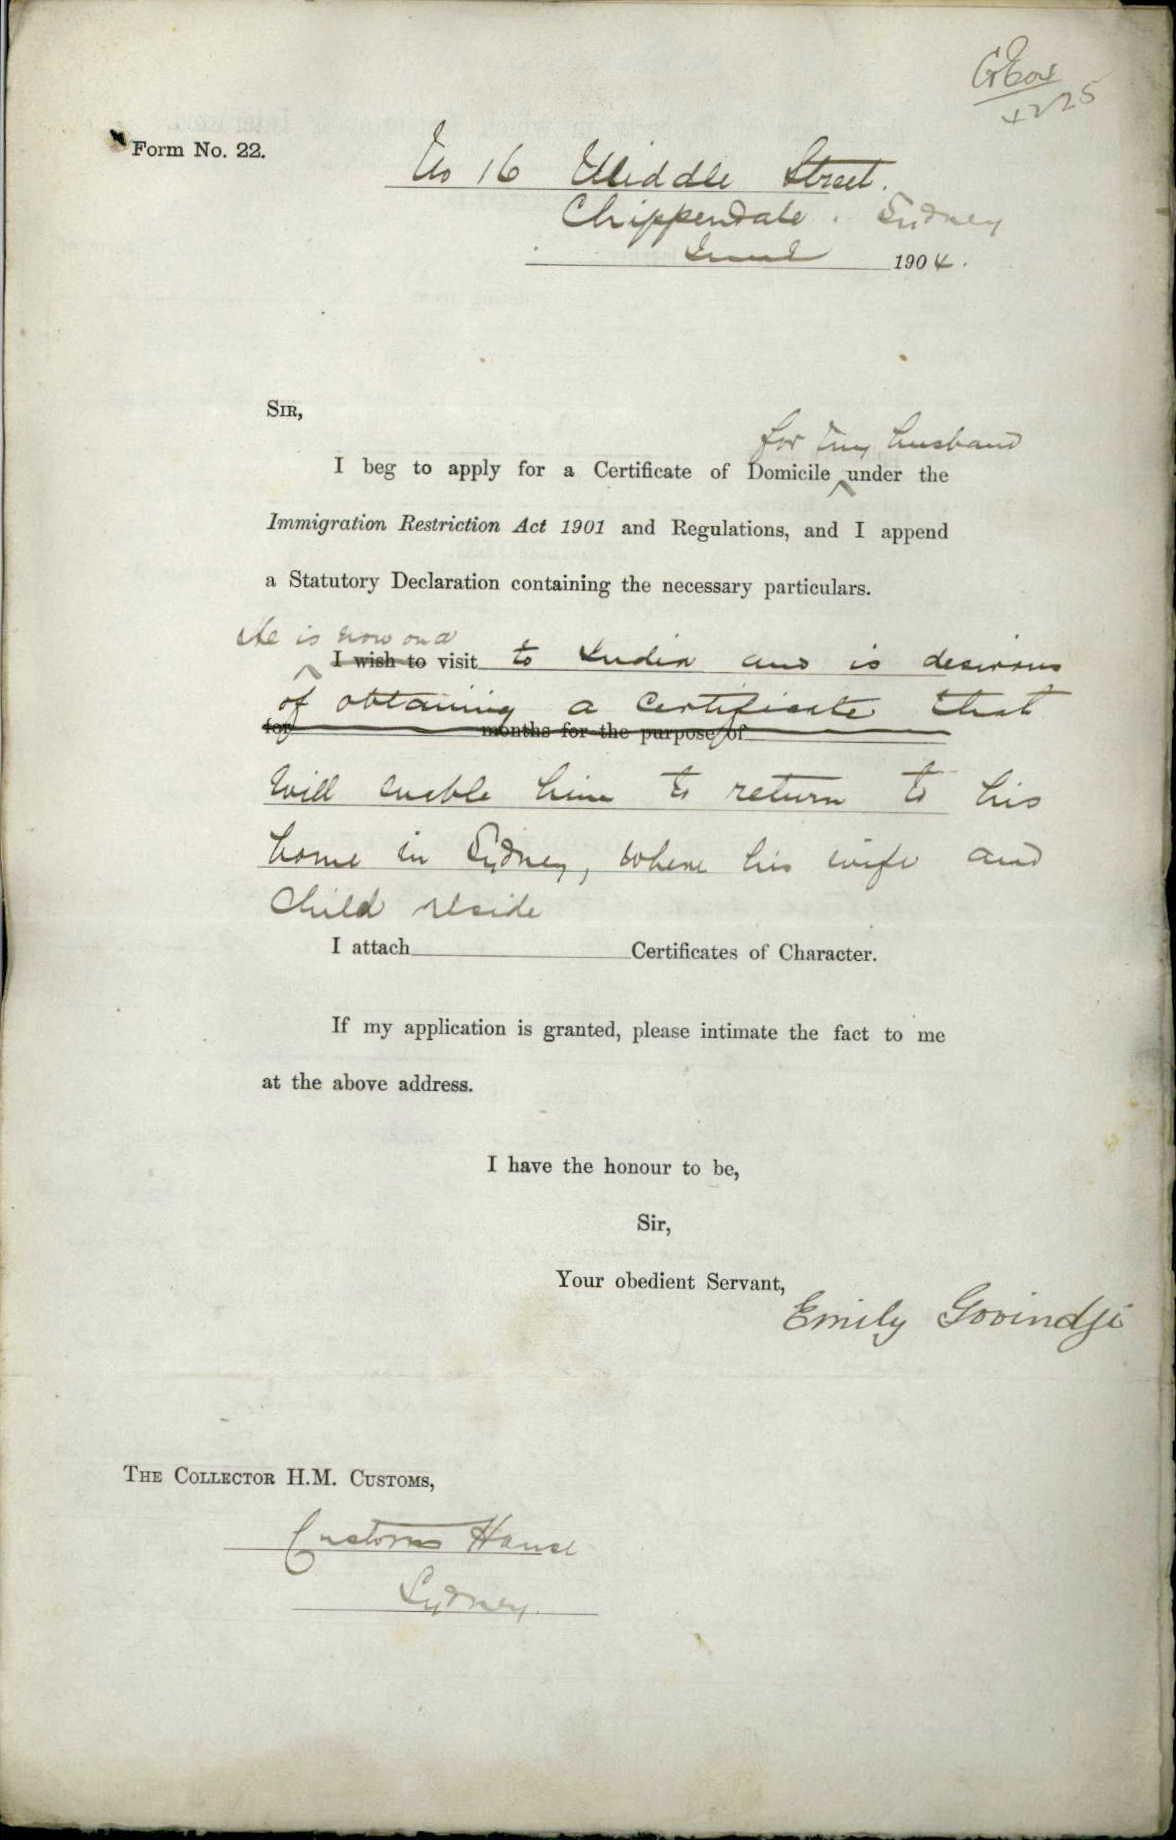 Form No. 22.
No 16 Middle Street.
Chippendale. Sydney
June 1904.
SIR,
for my husband
I beg to apply for a Certificate of Domicile ^ under the
Immigration Restriction Act 1901 and Regulations, and I append
a Statutory Declaration containing the necessary particulars.
He is now on a
^ I wish to visit to India and is desirous
of obtaining a certificate that
for months for the purpose of
will enable him to return to his
home in Sydney, where his wife and
child reside
I attach Certificates of Character.
If my application is granted, please intimate the fact to me
at the above address.
I have the honour to be,
Sir,
Your obedient Servant,
Emily Govindji
THE COLLECTOR H.M. CUSTOMS,
Customs House
Sydney.